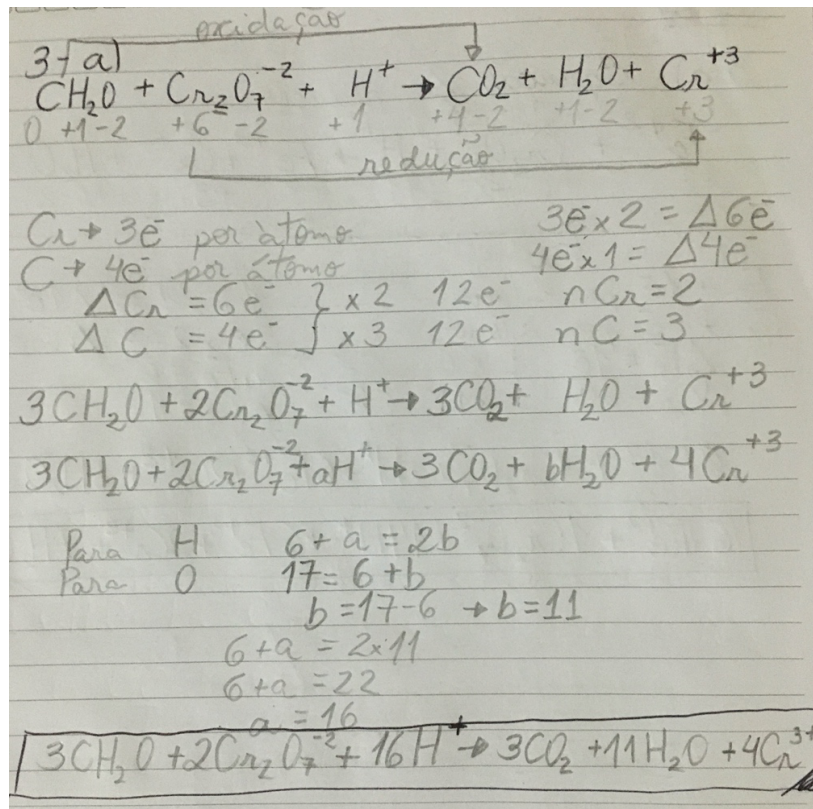 oxidação
3-a)
CH₂O + Cr₂O₇⁻² + H⁺ → CO₂ + H₂O + Cr⁺³
0 +1-2 +6 -2 +1 +4-2 +1-2 +3
redução
Cr → 3e⁻ por átomo 3e⁻ x 2 = Δ6e⁻
C → 4e⁻ por átomo 4e⁻ x 1 = Δ4e⁻
Δ Cr = 6e⁻ } x 2 12e⁻ nCr = 2
Δ C = 4e⁻ } x 3 12e⁻ nC = 3
3CH₂O + 2Cr₂O₇⁻² + H⁺ → 3CO₂ + H₂O + Cr⁺³
3CH₂O + 2Cr₂O₇⁻² + aH⁺ → 3CO₂ + bH₂O + 4Cr⁺³
Para H 6 + a = 2b
Para O 17 = 6 + b
b = 17 - 6 → b = 11
6 + a = 2x11
6 + a = 22
a = 16
3CH₂O + 2Cr₂O₇⁻² + 16H⁺ → 3CO₂ + 11H₂O + 4Cr³⁺